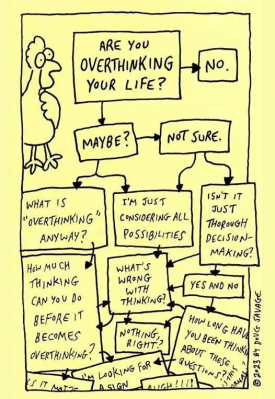 ARE YOU
OVERTHINKING
YOUR LIFE?
NO.
MAYBE?
NOT SURE.
WHAT IS
"OVERTHINKING"
ANYWAY?
I'M JUST
CONSIDERING ALL
POSSIBILITIES
ISN'T IT
JUST
THOROUGH
DECISION-
MAKING?
HOW MUCH
THINKING
CAN YOU DO
BEFORE IT
BECOMES
OVERTHINKING?
WHAT'S
WRONG
WITH
THINKING?
YES AND NO
NOTHING,
RIGHT?
HOW LONG HAVE
YOU BEEN THINKING
ABOUT THESE
QUESTIONS?
I'M LOOKING FOR
A SIGN
© 2023 BY DOUG SAVAGE